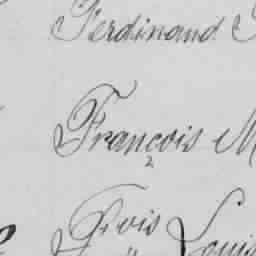 Ferdinand
François M
Frois Louis